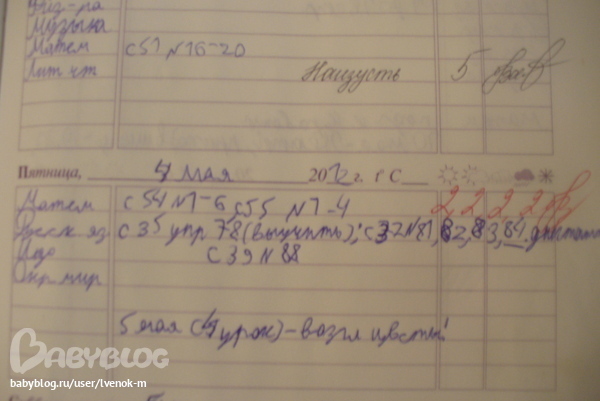 Физ-ра
Музыка
Матем с 51 №16-20
Лит чт Наизусть 5
Пятница, 4 мая 2012 г. t°C
Матем с 54 №1-6, с55 №1-4 2, 2 2 2
Русск яз с 35 упр 78 (выучить); с32 №81, 82, 83, 84.
Изо с 39 № 88
Окр мир
5 мая (4 урок) - возл цветы!
BABYBLOG
babyblog.ru/user/lvenok-m